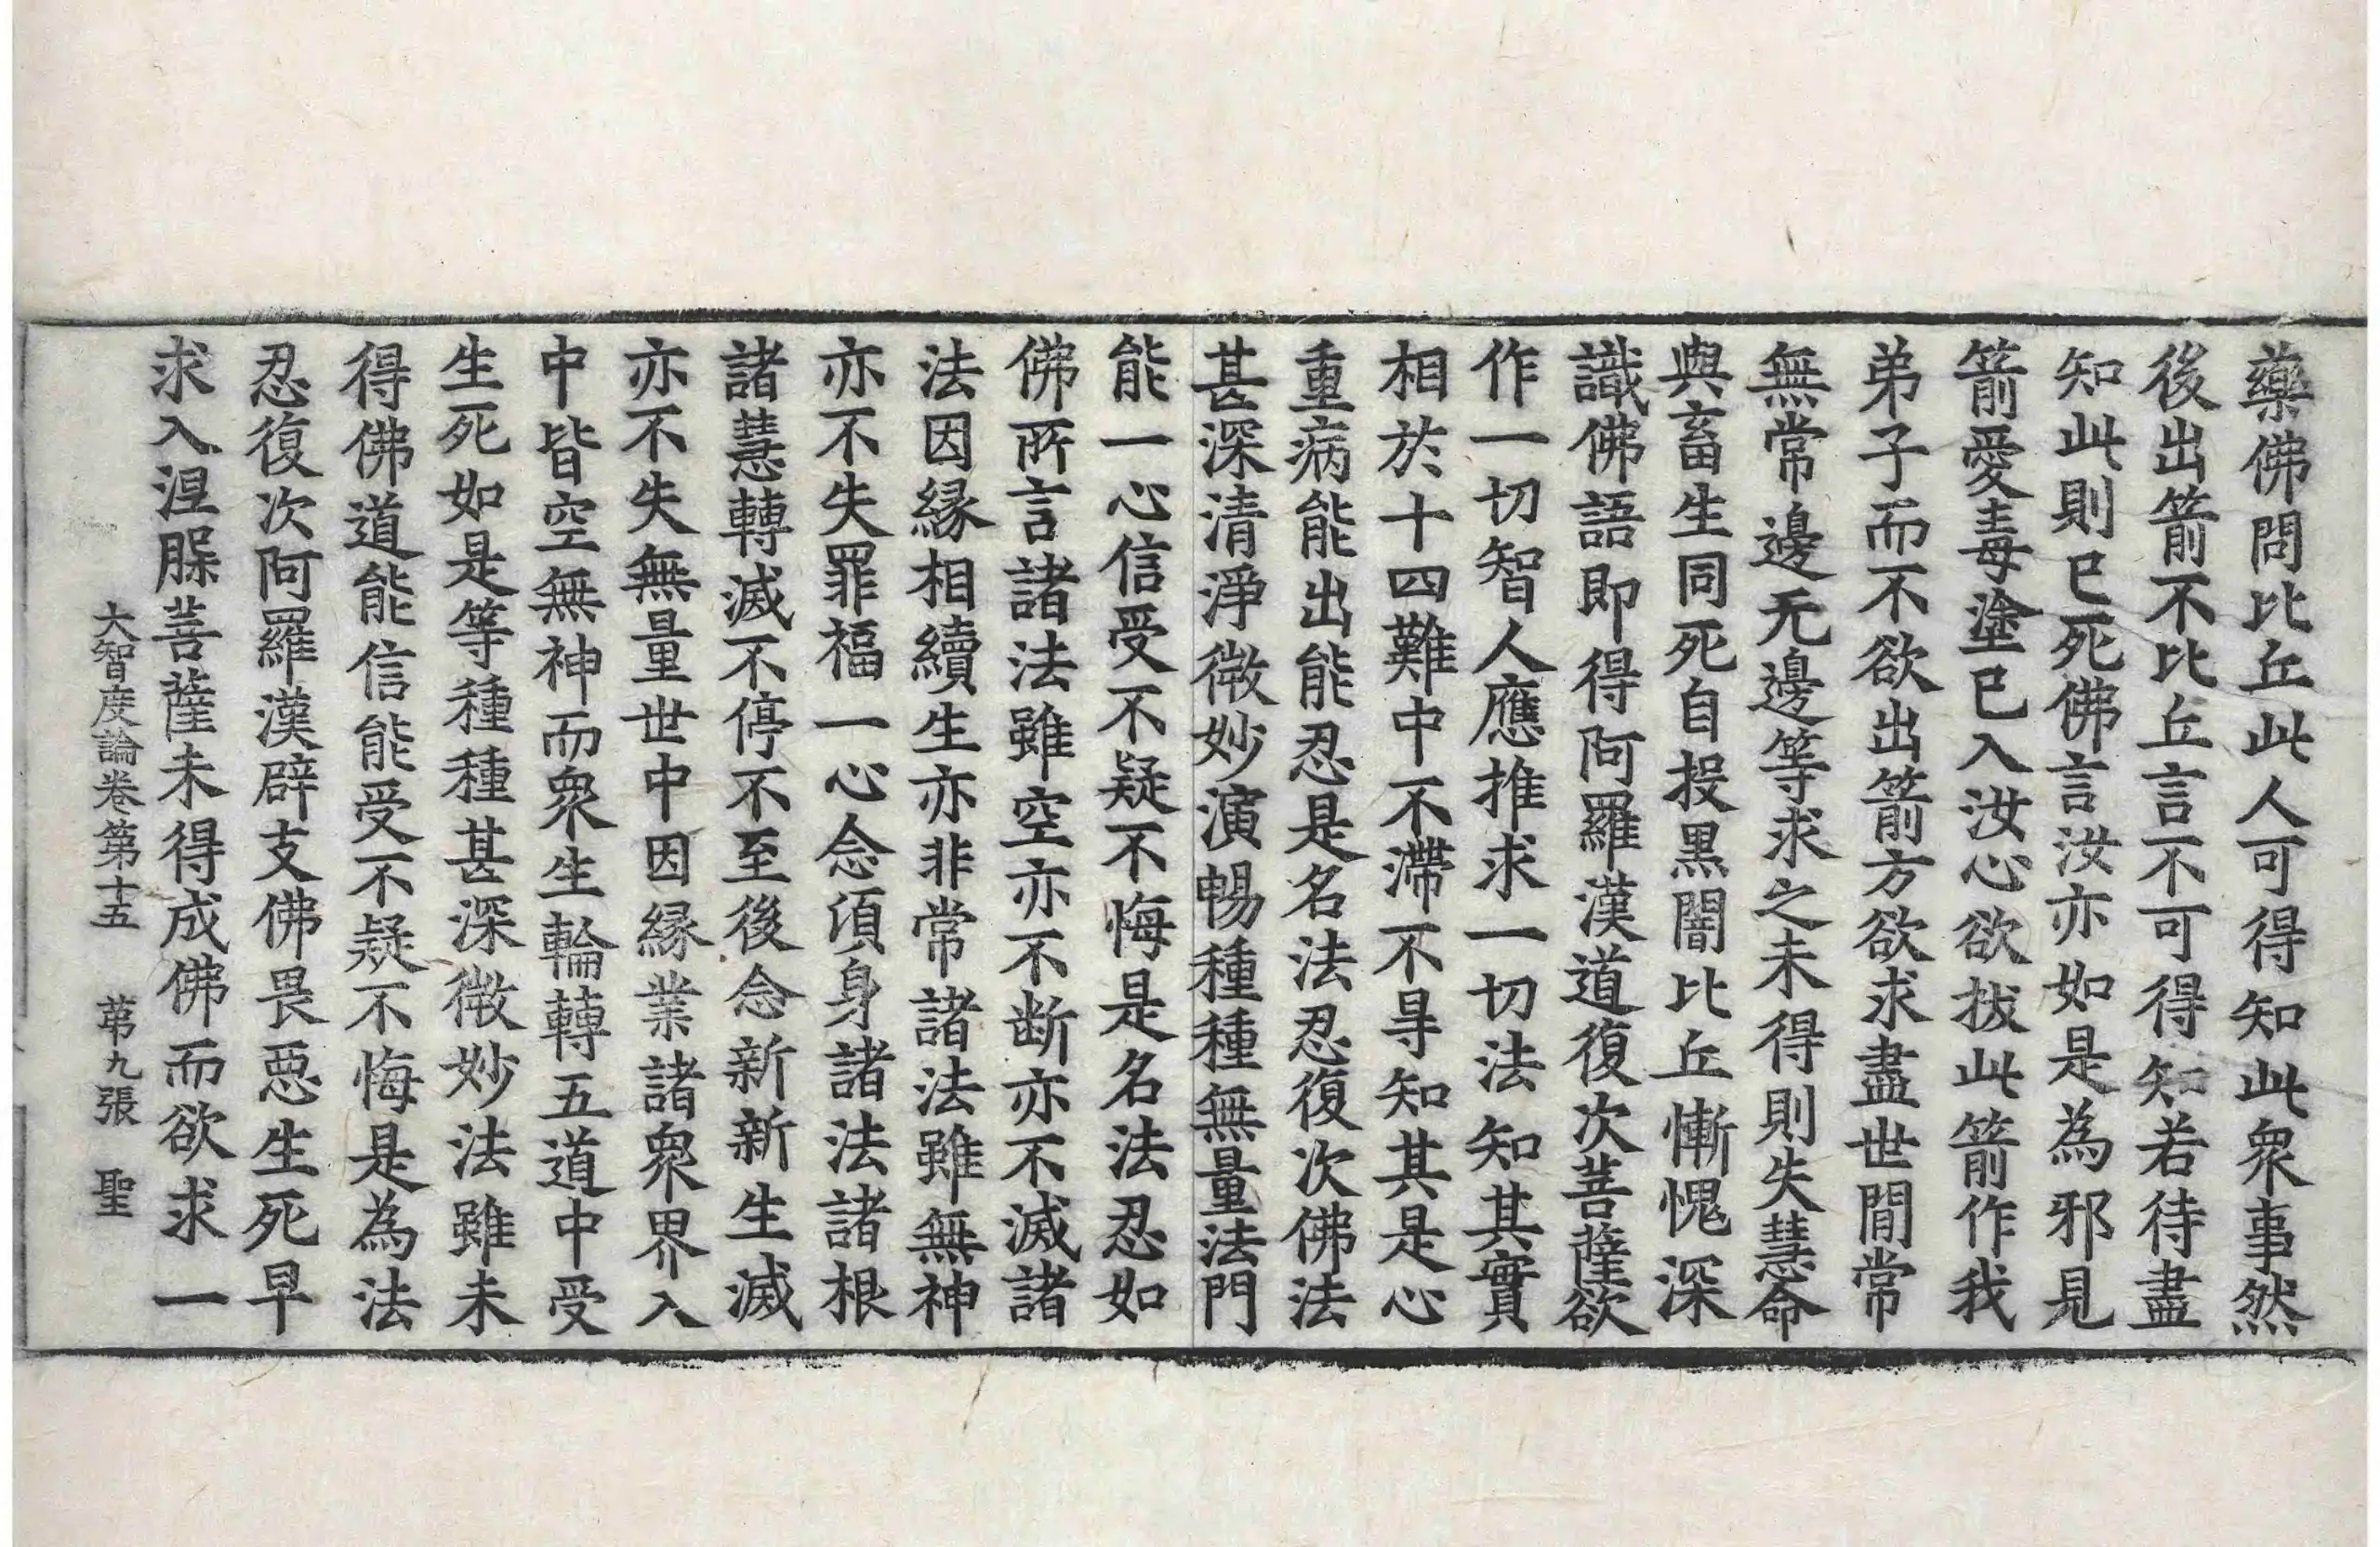 藥佛問比丘此人可得知此衆事然
後出箭不比丘言不可得知若待盡
知此則已死佛言汝亦如是為邪見
箭愛毒塗已入汝心欲拔此箭作我
弟子而不欲出箭方欲求盡世間常
無常邊无邊等求之未得則失慧命
與畜生同死自投黑闇比丘慚愧深
識佛語即得阿羅漢道復次菩薩欲
作一切智人應推求一切法知其實
相於十四難中不滯不㝵知其是心
重病能出能忍是名法忍復次佛法
甚深清淨微妙演暢種種無量法門
能一心信受不疑不悔是名法忍如
佛所言諸法雖空亦不断亦不滅諸
法因縁相續生亦非常諸法雖無神
亦不失罪福一心念湏身諸法諸根
諸慧轉滅不停不至後念新新生滅
亦不失無量世中因縁業諸衆界入
中皆空無神而衆生輪轉五道中受
生死如是等種種甚深微妙法雖未
得佛道能信能受不疑不悔是為法
忍復次阿羅漢辟支佛畏惡生死早
求入涅𦙾菩薩未得成佛而欲求一
大智度論卷第十五 苐九張 聖